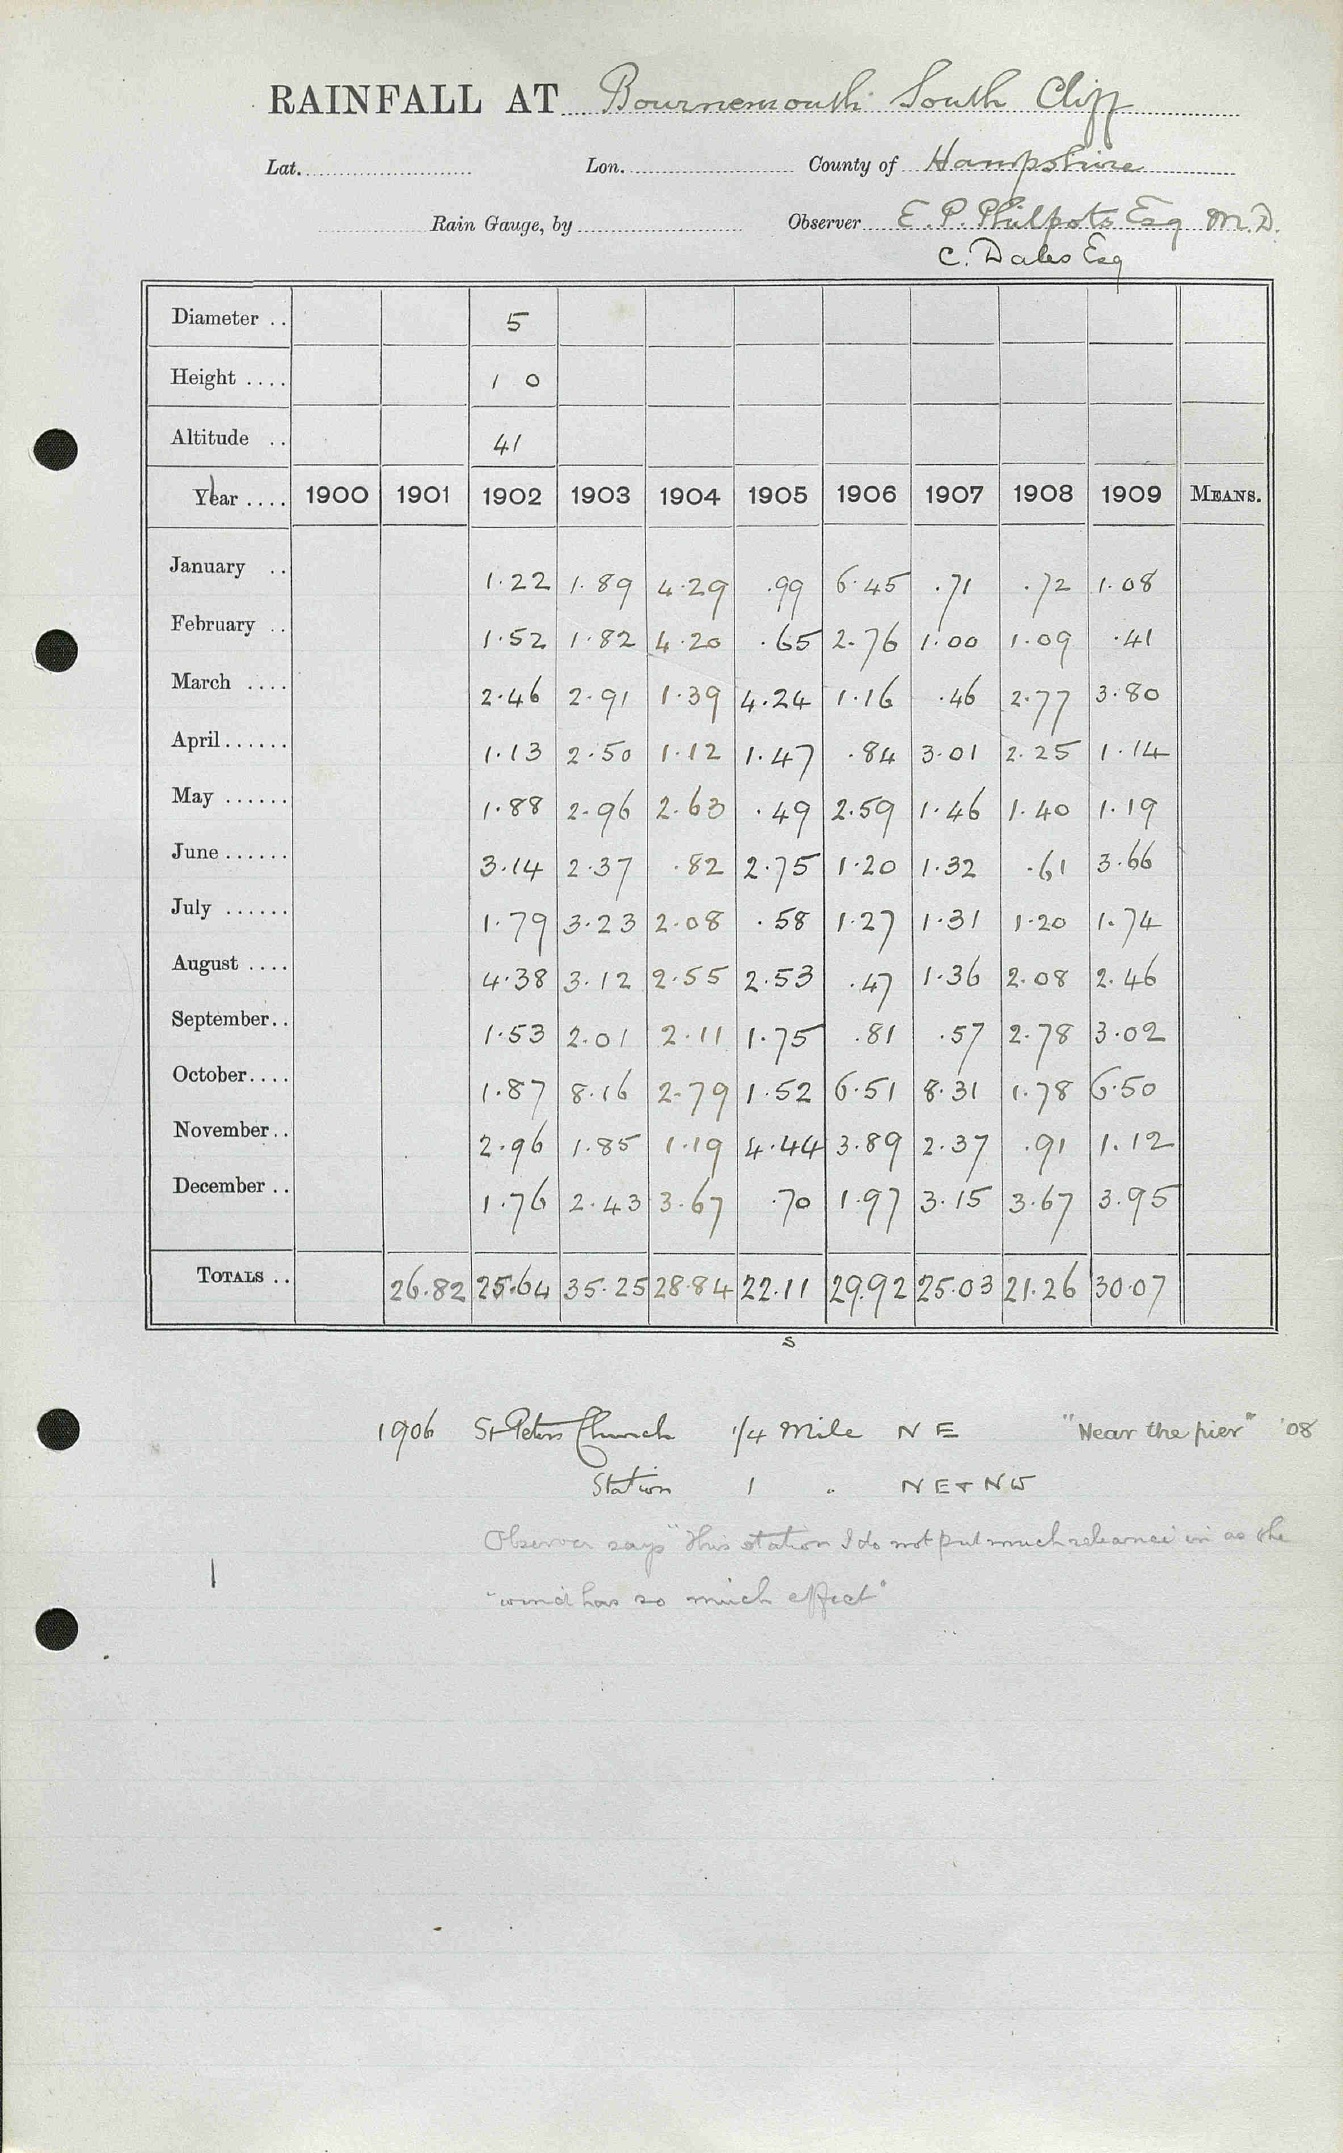 RAINFALL AT Bournemouth South Cliff
Lat. Lon. County of Hampshire
Rain Gauge, by Observer E. P. Philpots Esq M.D.
C. Dales Esq
Diameter .. 5
Height .... 1 0
Altitude .. 41
Year .... 1900 1901 1902 1903 1904 1905 1906 1907 1908 1909 MEANS.
January .. 1.22 1.89 4.29 .99 6.45 .71 .72 1.08
February .. 1.52 1.82 4.20 .65 2.76 1.00 1.09 .41
March .... 2.46 2.91 1.39 4.24 1.16 .46 2.77 3.80
April...... 1.13 2.50 1.12 1.47 .84 3.01 2.25 1.14
May ...... 1.88 2.96 2.63 .49 2.59 1.46 1.40 1.19
June ...... 3.14 2.37 .82 2.75 1.20 1.32 .61 3.66
July ...... 1.79 3.23 2.08 .58 1.27 1.31 1.20 1.74
August .... 4.38 3.12 2.55 2.53 .47 1.36 2.08 2.46
September.. 1.53 2.01 2.11 1.75 .81 .57 2.78 3.02
October.... 1.87 8.16 2.79 1.52 6.51 8.31 1.78 6.50
November.. 2.96 1.85 1.19 4.44 3.89 2.37 .91 1.12
December .. 1.76 2.43 3.67 .70 1.97 3.15 3.67 3.95
TOTALS .. 26.82 25.64 35.25 28.84 22.11 29.92 25.03 21.26 30.07
s
1906 St Peters Church 1/4 Mile N E "Near the pier" '08
Station 1 " N E & N W
Observer says "this station I do not put much releance in as the
"wind has so much effect"